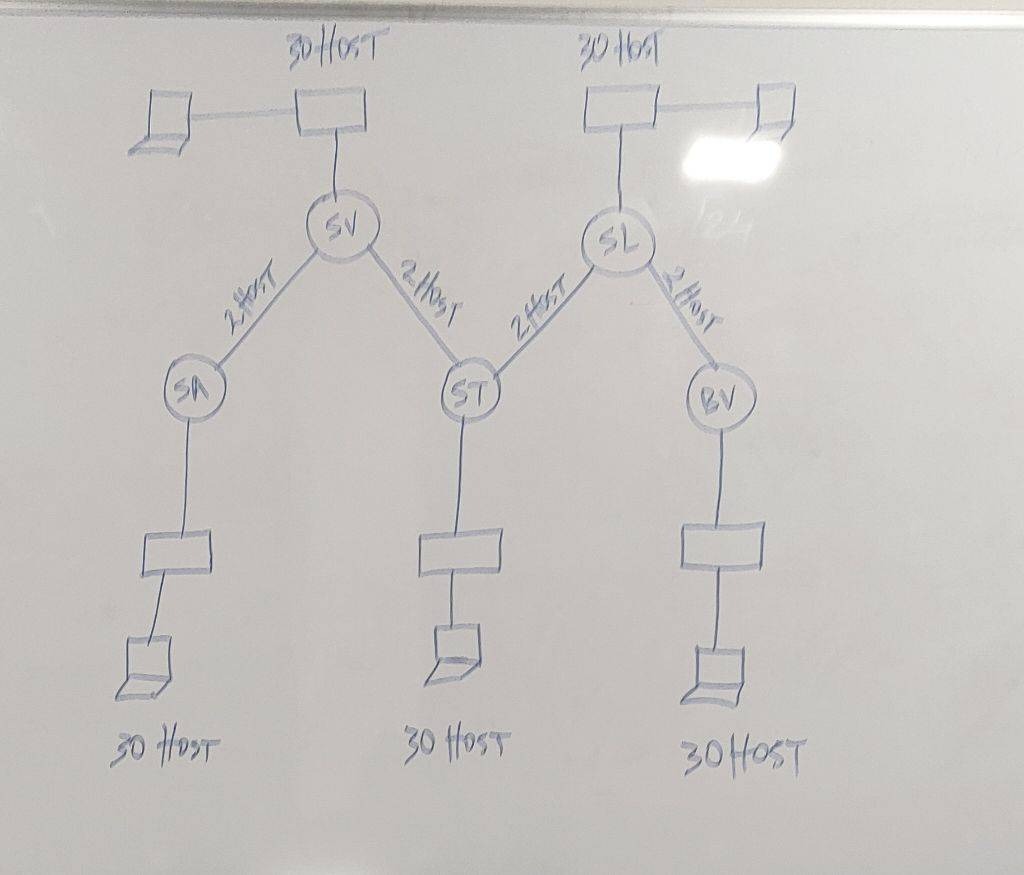 30 HOST
30 HOST
SV
SL
2 HOST
2 HOST
2 HOST
2 HOST
SA
ST
BV
30 HOST
30 HOST
30 HOST